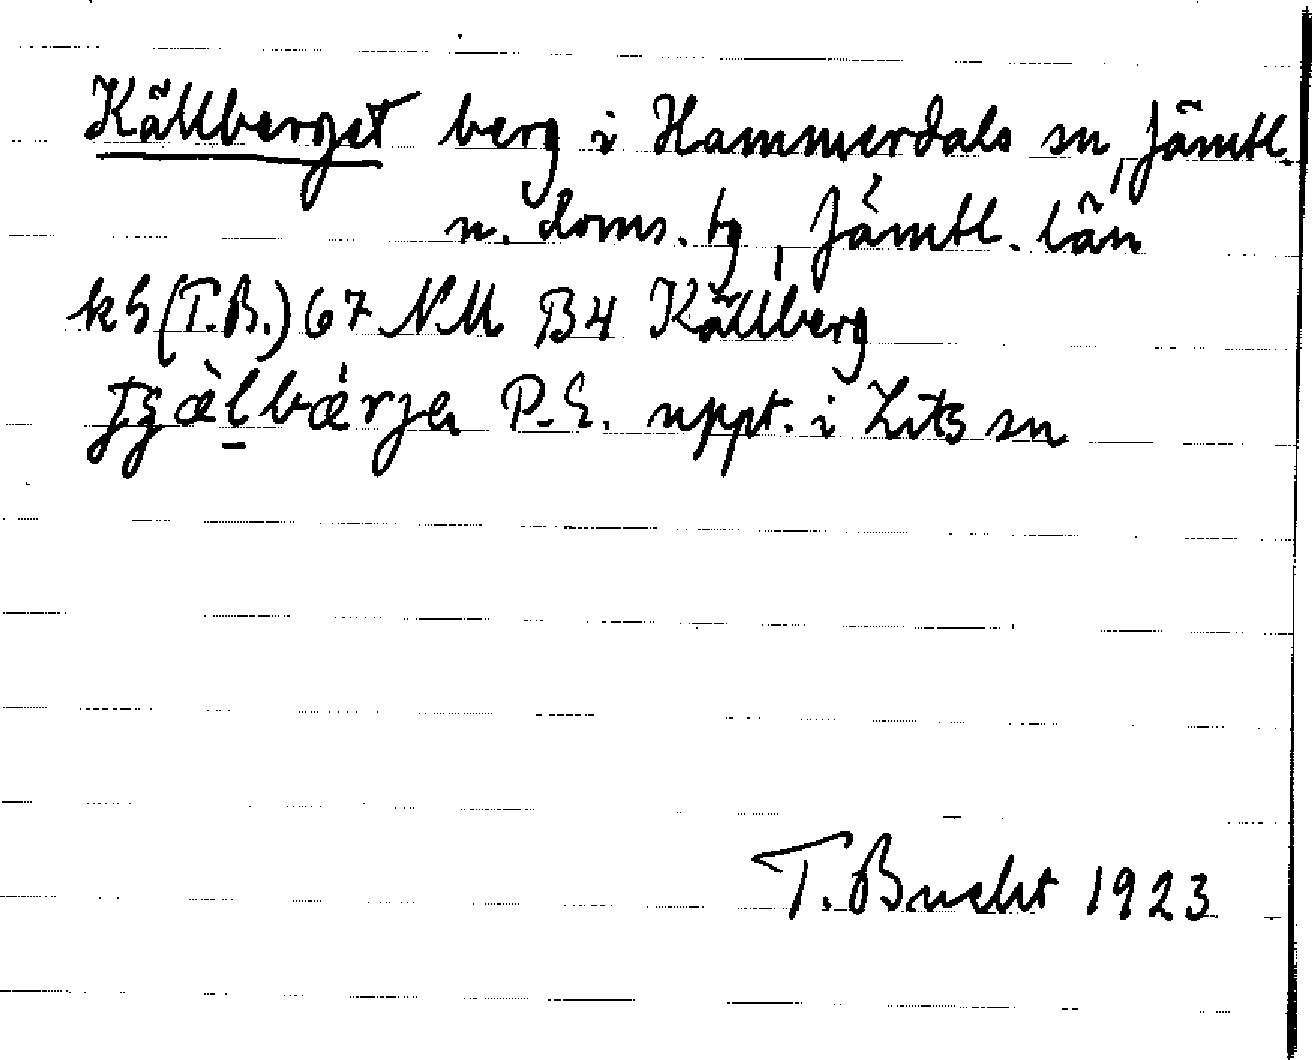 Källberget berg i Hammerdals sn, Jämtl.
n. doms. tg, Jämtl. län
kh (T.B.) 67 NM B4 Källberg
P.E. uppt. i Lits sn
T. Bucht 1923